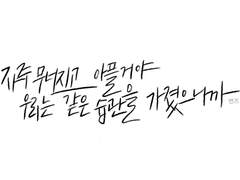 자주 무너지고 아플거야
우리는 같은 습관을 가졌으니까